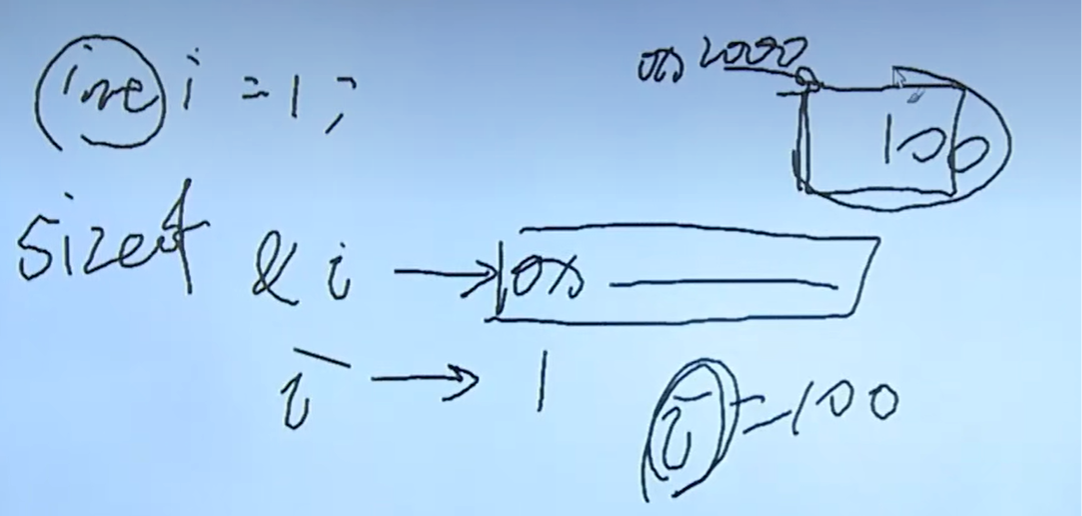 int i = 1;
0x2000
100
sizeof & i → 0x
i → 1
i = 100